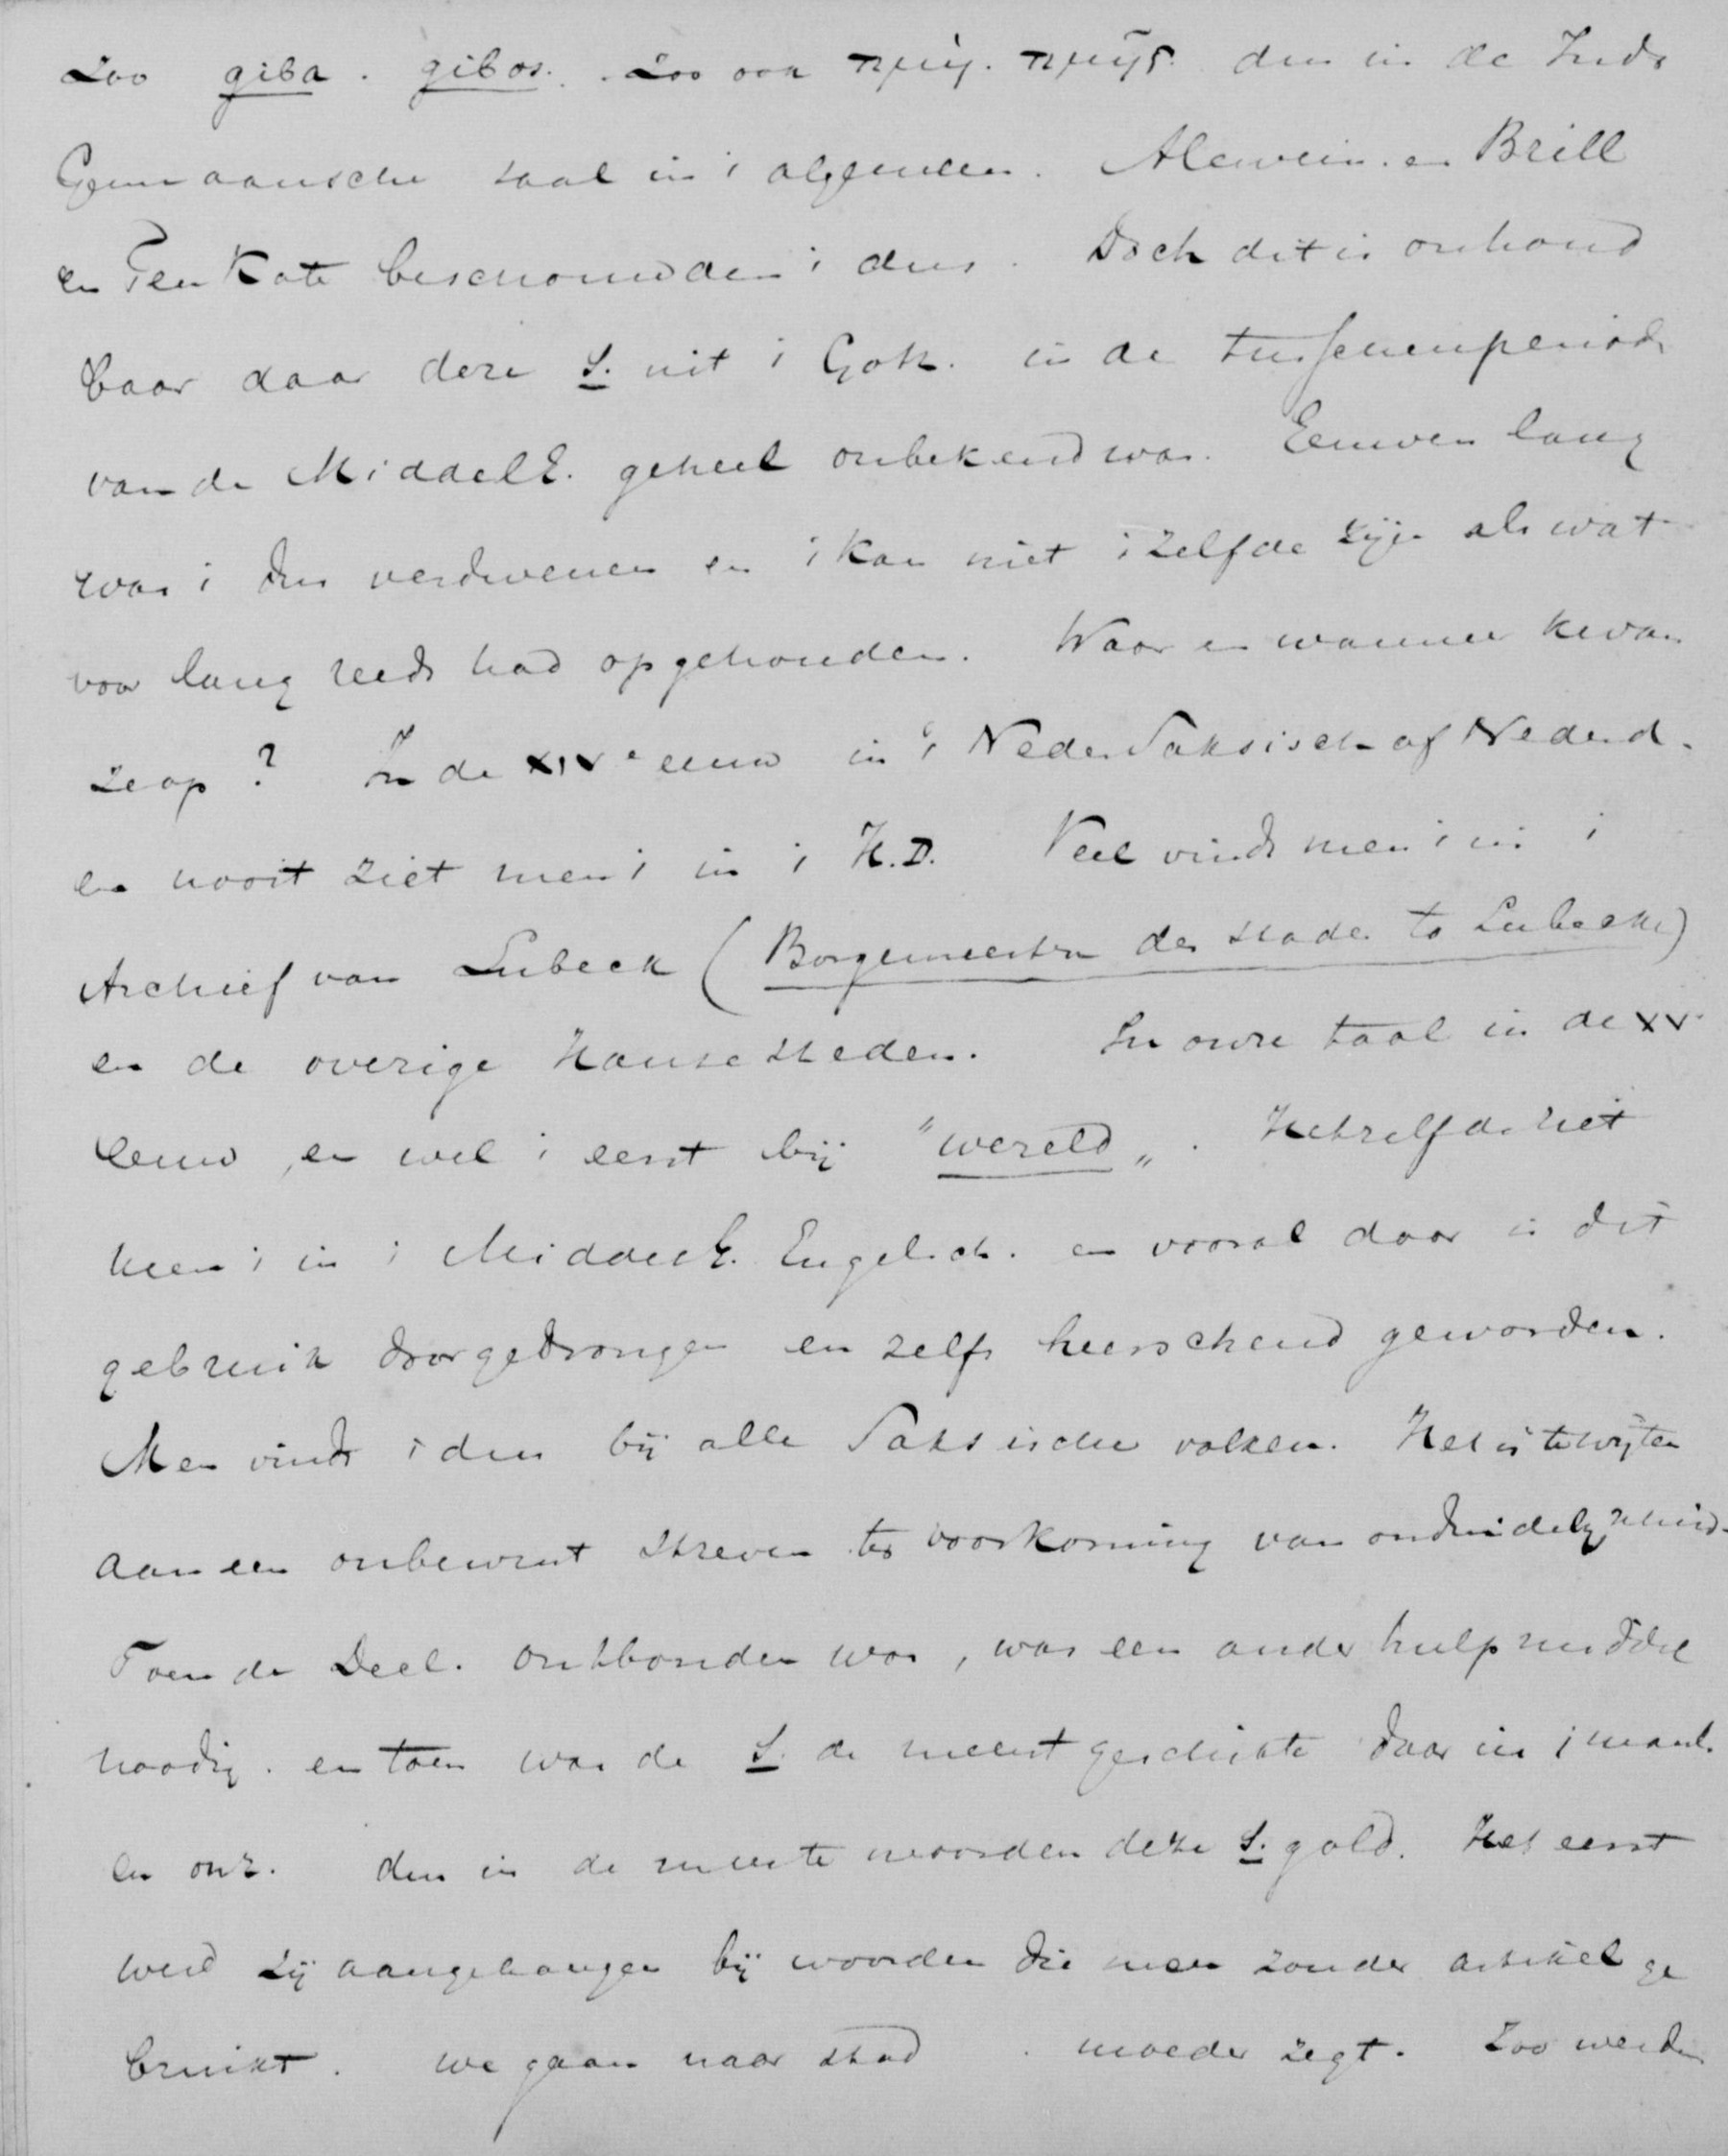 Zoo giba. gibos. Zoo ook τιμή. τιμῆς. dus in de Indo
Germaansche taal in 't algemeen. Alewein. en Brill
en Ten Kate beschouwden 't dus. Doch dit is onhoud
baar daar deze S. uit 't Goth. in de tusschenperiode
van de MiddelE. geheel onbekend was. Eeuwen lang
was 't dus verdwenen en 't kan niet 't zelfde zijn als wat
voor lang reeds had opgehouden. Waar en wanneer kwam
ze op? In de XIVe eeuw in 't NederSaksisch of Nederd.
en nooit ziet men 't in 't H.D. Veel vindt men 't in 't
Archief van Lubeck (Borgemeester der stades to Lubecke)
en de overige Hansesteden. In onze taal in de XVe
eeuw, en wel 't eerst bij "wereld„. Hetzelfde ziet
men 't in 't MiddelE. Engelsch. en vooral daar is dit
gebruik doorgedrongen en zelfs heerschend geworden.
Men vindt 't dus bij alle Saksische volken. Het is te wijten
aan een onbewust streven ter voorkoming van onduidelijkheid.
Toen de Decl. ontbonden was, was een ander hulpmiddel
noodig. en toen was de S. de meest geschikte daar in 't manl.
en onz. dus in de meeste woorden deze S. gold. Het eerst
werd zij aangehangen bij woorden die men zonder artikel ge
bruikt. we gaan naar stad . moeder zegt. Zoo werden